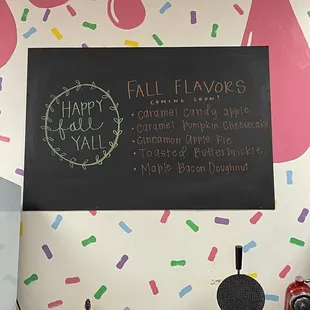 HAPPY
fall
YALL
FALL FLAVORS
COMING SOON!
• Caramel Candy apple
• Caramel Pumpkin Cheesecake
• Cinnamon Apple Pie
• Toasted Butterbrickle
• Maple Bacon Doughnut